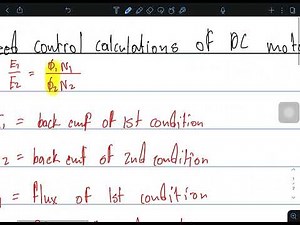 control calculations of DC
E1/E2 = ϕ1N1/ϕ2N2
1 = back emf of 1st condition
2 = back emf of 2nd condition
= flux of 1st condition